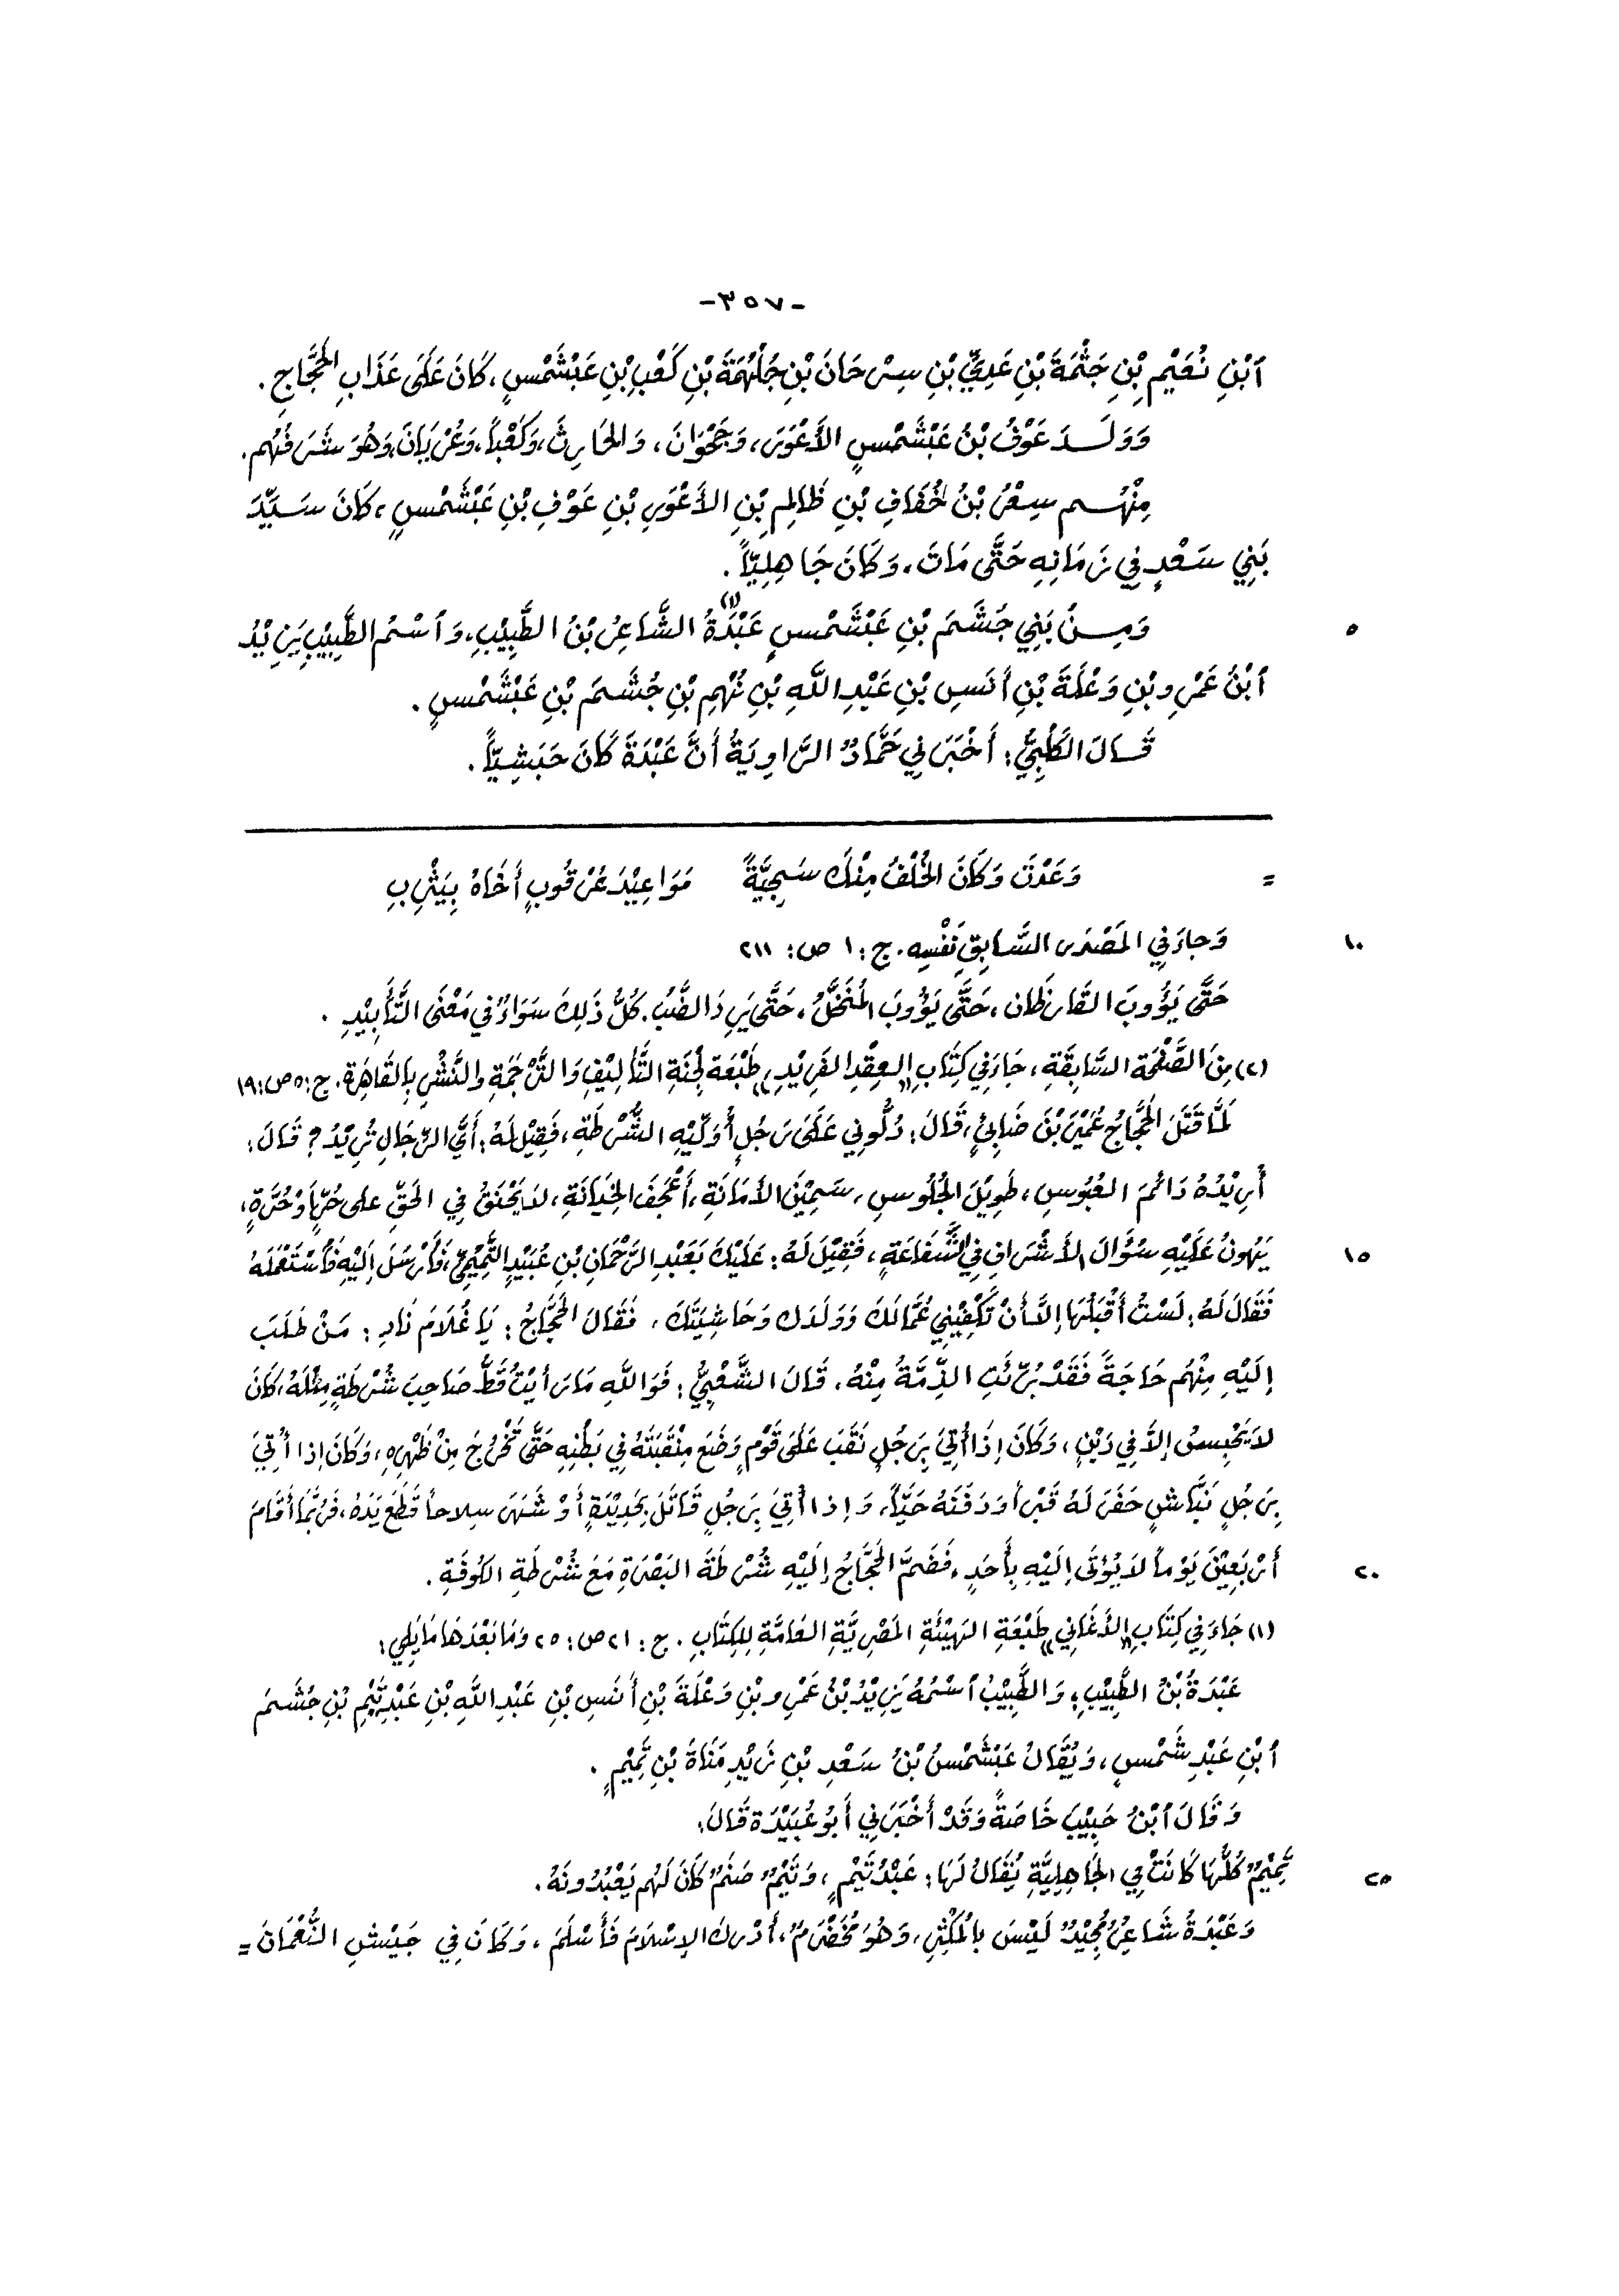 -٣٥٧-
ٱبْنِ نُعَيْمِ بْنِ جَثْمَةَ بْنِ عَدِيِّ بْنِ سِرْحَانَ بْنِ جُلْهُمَةَ بْنِ كَعْبِ بْنِ عَبْشَمْسٍ، كَانَ عَلَى عَذَابِ الحَجَّاجِ.
وَوَلَــدَ عَوْفُ بْنُ عَبْشَمْسٍ الأَعْوَرَ، وَجَحْوَانَ، وَالحَارِثَ، وَكَعْباً، وَعُرْيَانَ، وَهُوَ شَرَفُهُم.
مِنْهُــم سِعْرُ بْنُ خُفَافِ بْنِ ظَالِمِ بْنِ الأَعْوَرِ بْنِ عَوْفِ بْنِ عَبْشَمْسٍ، كَانَ سَــيِّدَ
بَنِي سَعْدٍ فِي زَمَانِهِ حَتَّى مَاتَ، وَكَانَ جَاهِلِيّاً.
٥ وَمِــنْ بَنِي جُشَمَ بْنِ عَبْشَمْسٍ عَبْدَةُ (١) الشَّاعِرُ بْنُ الطَّبِيْبِ، وَٱسْمُ الطَّبِيْبِ يَزِيْدُ
ٱبْنُ عَمْرِو بْنِ وَعْلَةَ بْنِ أَنَسِ بْنِ عَبْدِ اللَّهِ بْنِ نُهْمِ بْنِ جُشَمَ بْنِ عَبْشَمْسٍ.
قَــالَ الكَلْبِيُّ: أَخْبَرَنِي حَمَّادٌ الرَّاوِيَةُ أَنَّ عَبْدَةَ كَانَ حَبَشِيّاً.
= وَعَدْتَ وَكَانَ الخُلْفُ مِنْكَ سَجِيَّةً مَوَاعِيْدَ عُرْقُوبٍ أَخَاهُ بِيَثْرِبِ
١٠ وَجاءَ فِي المَصْدَرِ السَّابِقِ نَفْسِهِ. ج: ١ ص: ٢١١
حَتَّى يَؤُوبَ القَارِظَان، حَتَّى يَؤُوبَ المُنَخَّلُ، حَتَّى يَرِدَ الضَّبُّ. كُلُّ ذَلِكَ سَوَاءٌ فِي مَعْنَى التَّأْبِيْدِ.
(٢) مِنَ الصَّفْحَةِ السَّابِقَةِ، جَاءَ فِي كِتَابِ «العِقْدِ الفَرِيْدِ» طَبْعَةِ لَجْنَةِ التَّأْلِيْفِ وَالتَّرْجَمَةِ والنَّشْرِ بِالقَاهِرَةِ. ج: ٥ ص: ١٩
لَمَّا قَتَلَ الحَجَّاجُ عُمَيْرَ بْنَ ضَابِئٍ، قَالَ: دُلُّونِي عَلَى رَجُلٍ أُوَلِّيْهِ الشُّرْطَةَ، فَقِيْلَ لَهُ: أَيَّ الرِّجَالِ تُرِيْدُ؟ قَالَ:
أُرِيْدُهُ دَائِمَ العُبُوسِ، طَوِيْلَ الجُلُوسِ، سَمِيْنَ الأَمَانَةِ، أَعْجَفَ الخِيَانَةِ، لاَ يَحْنَقُ فِي الحَقِّ على حُرٍّ أَوْ حُرَّةٍ،
١٥ يَهُونُ عَلَيْهِ سُؤَالَ الأَشْرَافِ فِي الشَّفَاعَةِ، فَقِيْلَ لَهُ: عَلَيْكَ بِعَبْدِ الرَّحْمَانِ بْنِ عُبَيْدٍ التَّمِيْمِيِّ، فَأَرْسَلَ إِلَيْهِ فَٱسْتَعْمَلَهُ
فَقَالَ لَهُ: لَسْتُ أَقْبَلُهَا إِلاَّ أَنْ تَكْفِيْنِي عُمَّالَكَ وَوَلَدَكَ وَحَاشِيَتَكَ، فَقَالَ الحَجَّاجُ: يَا غُلاَمَ نَادِ: مَنْ طَلَبَ
إِلَيْهِ مِنْهُم حَاجَةً فَقَدْ بَرِئَتِ الذِّمَّةُ مِنْهُ. قَالَ الشَّعْبِيُّ: فَوَاللَّهِ مَا رَأَيْتُ قَطُّ صَاحِبَ شُرْطَةٍ مِثْلَهُ، كَانَ
لاَ يَحْبِسُ إِلاَّ فِي دَيْنٍ، وَكَانَ إِذَا أُتِيَ بِرَجُلٍ نَقَبَ عَلَى قَوْمٍ وَضَعَ مِنْقَبَتَهُ فِي بَطْنِهِ حَتَّى تَخْرُجَ مِنْ ظَهْرِهِ، وَكَانَ إِذا أُتِيَ
بِرَجُلٍ نَبَّاشٍ حَفَرَ لَهُ قَبْراً وَدَفَنَهُ حَيّاً، وَإِذا أُتِيَ بِرَجُلٍ قَاتَلَ بِحَدِيْدَةٍ أَوْ شَهَرَ سِلاحاً قَطَعَ يَدَهُ، فَرُبَّمَا أَقَامَ
٢٠ أَرْبَعِيْنَ يَوْماً لاَ يُؤْتَى إِلَيْهِ بِأَحَدٍ، فَضَمَّ الحَجَّاجُ إِلَيْهِ شُرْطَةَ البَصْرَةِ مَعَ شُرْطَةِ الكُوفَةِ.
(١) جَاءَ فِي كِتَابِ «الأَغَانِي» طَبْعَةِ الهَيْئَةِ المَصْرِيَّةِ العَامَّةِ لِلكِتَابِ. ج: ٢١ ص: ٢٥ وَمَا بَعْدَهَا مَا يَلِي:
عَبْدَةُ بْنُ الطَّبِيْبِ، وَالطَّبِيْبُ ٱسْمُهُ يَزِيْدُ بْنُ عَمْرِو بْنِ وَعْلَةَ بْنِ أَنَسِ بْنِ عَبْدِ اللَّهِ بْنِ عَبْدِ تَيْمِ بْنِ جُشَمَ
ٱبْنِ عَبْدِ شَمْسٍ، وَيُقَالُ عَبْشَمْسُ بْنُ سَعْدِ بْنِ زَيْدِ مَنَاةَ بْنِ تَمِيْمٍ.
وَقَالَ ٱبْنُ حَبِيْبَ خَاصَةً وَقَدْ أَخْبَرَنِي أَبُو عُبَيْدَةَ قَالَ:
٢٥ تَمِيْمٌ كُلُّهَا كَانَتْ فِي الجَاهِلِيَّةِ يُقَالُ لَهَا: عَبْدُ تَيْمٍ، وَتَيْمٌ صَنَمٌ كَانَ لَهُم يَعْبُدُونَهُ.
وَعَبْدَةُ شَاعِرٌ مُجِيْدٌ لَيْسَ بِالمُكْثِرِ، وَهُوَ مُخَضْرَمٌ، أَدْرَكَ الإِسْلاَمَ فَأَسْلَمَ، وَكَانَ فِي جَيْشِ النُّعْمَانَ =